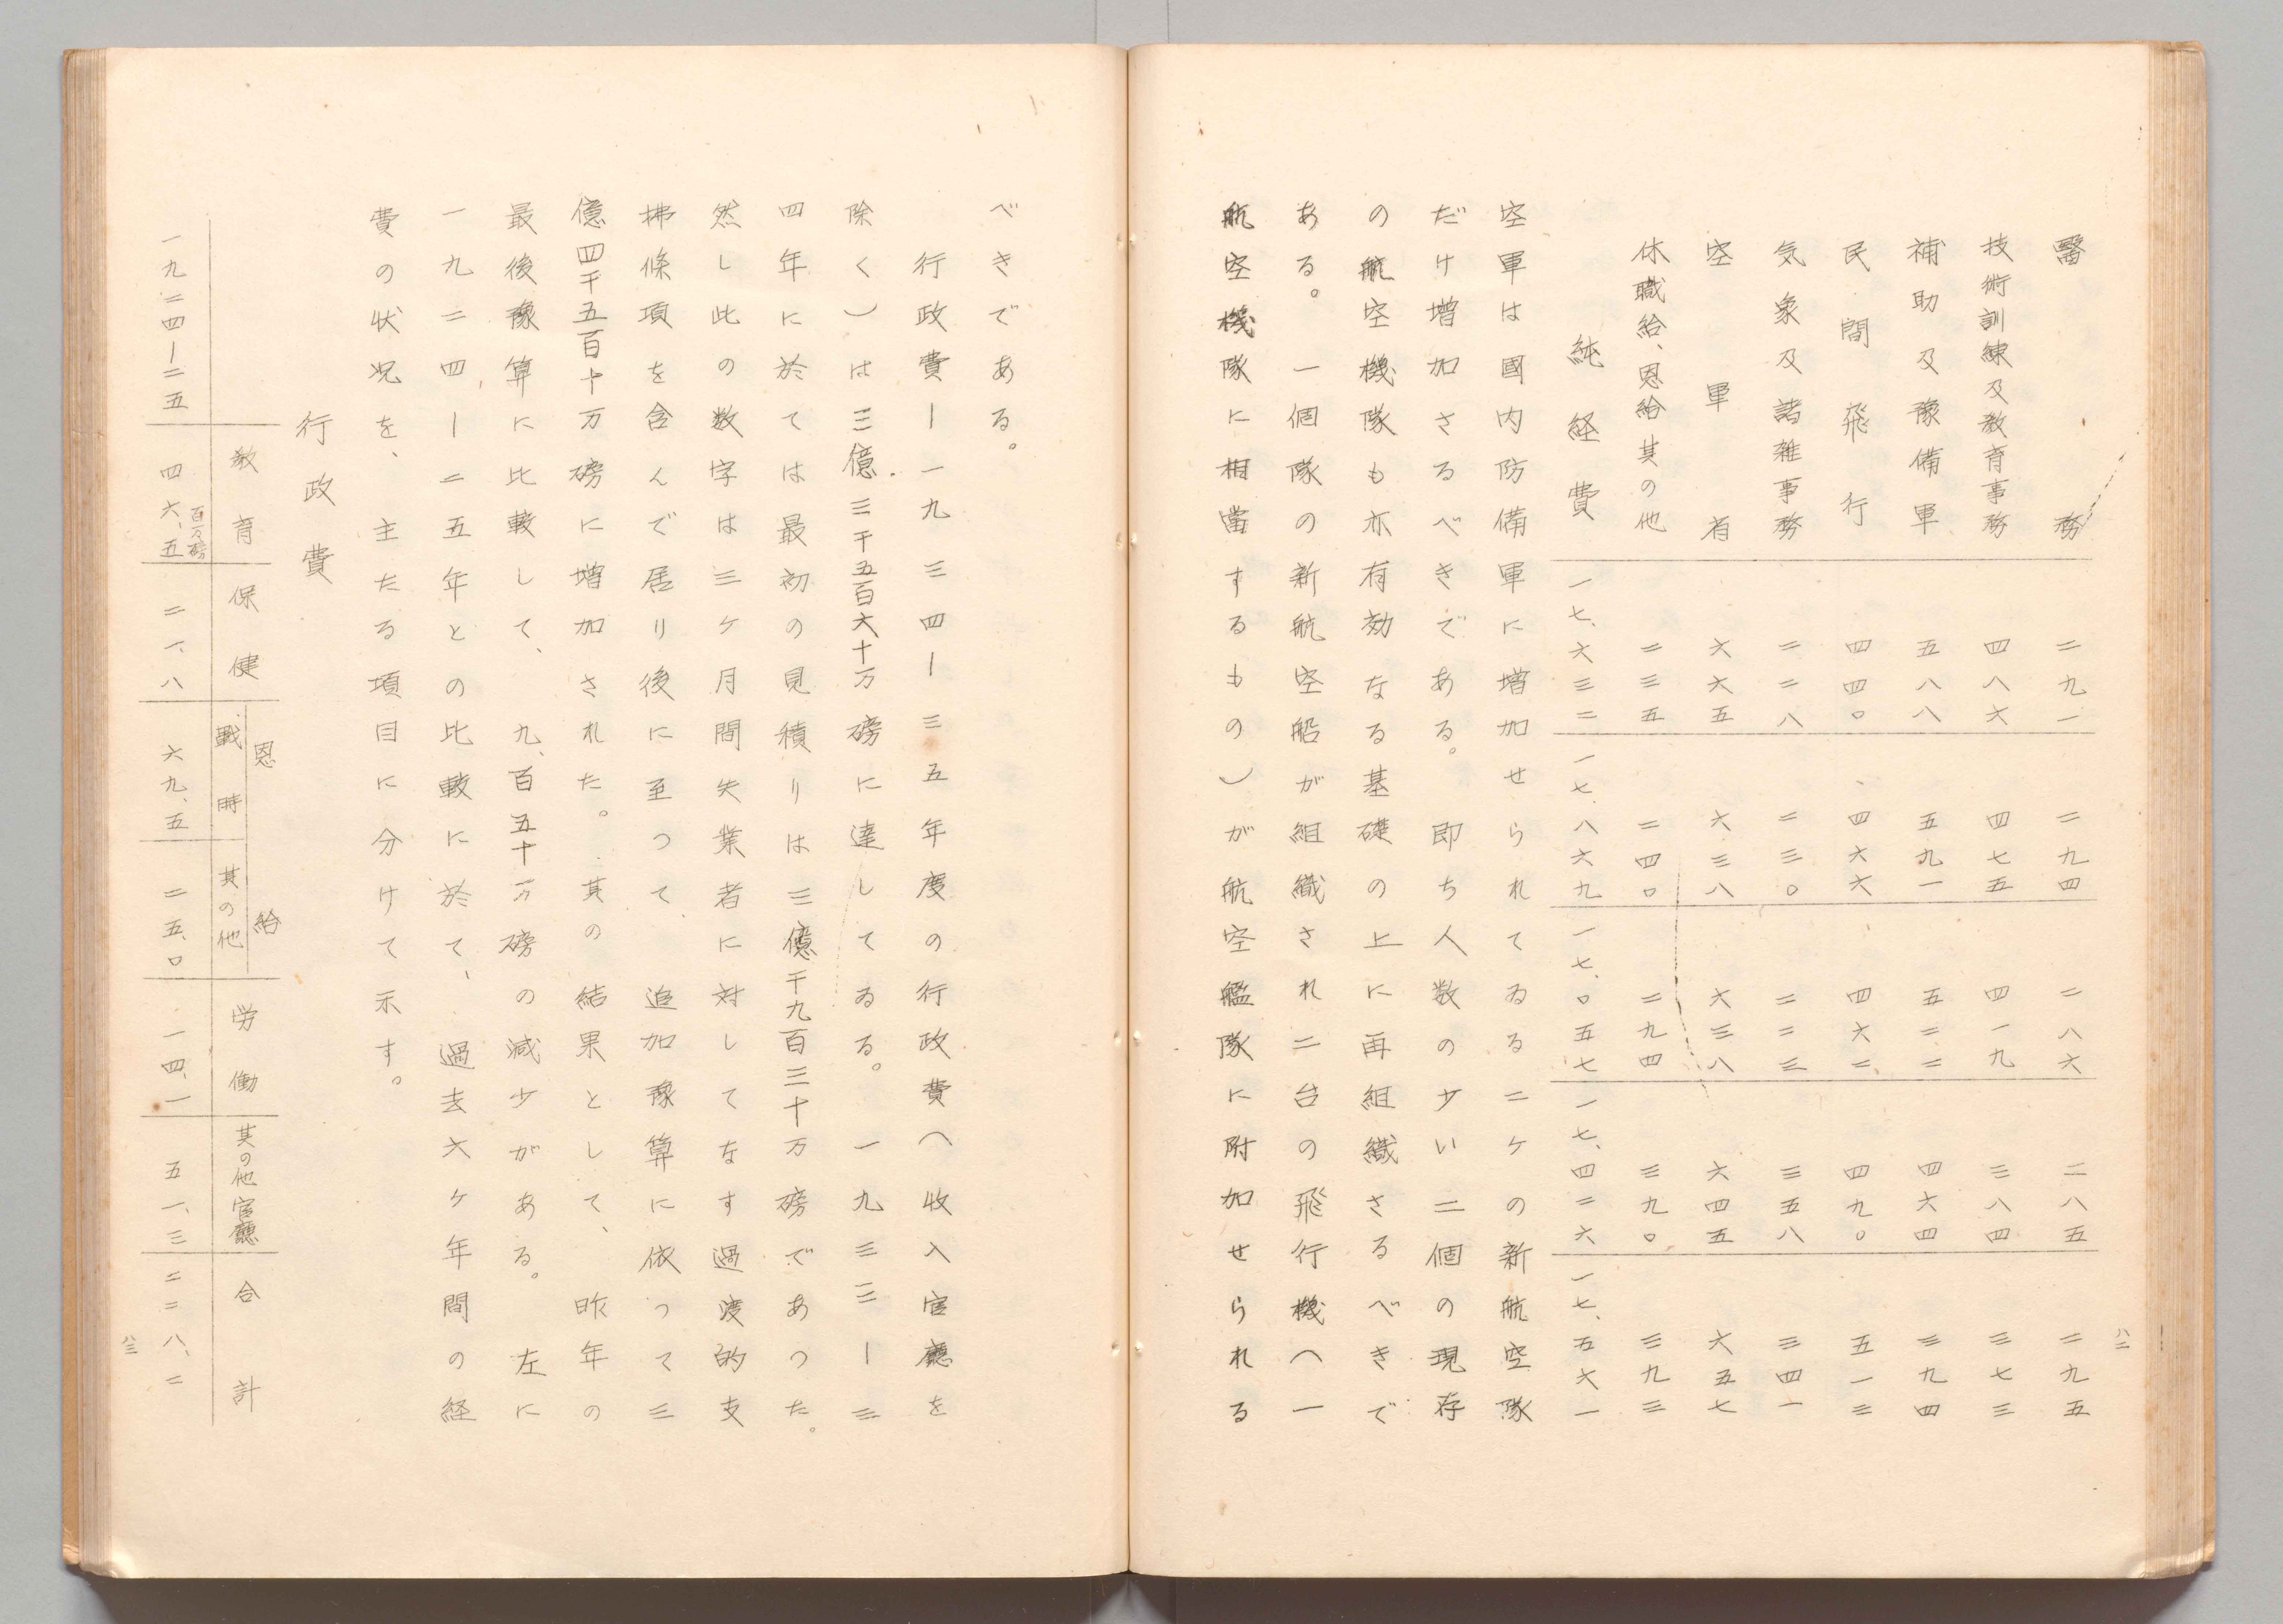 八二
醫務 二九一 二九四 二八六 二八五 二九五
技術訓練及教育事務 四八六 四七五 四一九 三八四 三七三
補助及豫備軍 五八八 五九一 五二二 四六四 三九四
民間飛行 四四〇 四六六 四六二 四九〇 五一三
気象及諸雑事務 二二八 二三〇 二二三 三五八 三四一
空軍省 六六五 六三八 六三八 六四五 六五七
休職給、恩給其の他 二三五 二四〇 二九四 三九〇 三九三
純経費 一七、六三二 一七、八六九 一七、〇五七 一七、四二六 一七、五六一
空軍は國内防備軍に増加せられてゐる二ケの新航空隊
だけ増加さるべきである。即ち人数の少い二個の現存
の航空機隊も亦有効なる基礎の上に再組織さるべきで
ある。一個隊の新航空船が組織され二台の飛行機(一
航空機隊に相當するもの)が航空艦隊に附加せられる
べきである。
行政費ー一九三四ー三五年度の行政費(收入官廳を
除く)は三億三千五百六十万磅に達してゐる。一九三三ー三
四年に於ては最初の見積りは三億千九百三十万磅であつた。
然し此の数字は三ケ月間失業者に対してなす過渡的支
拂條項を含んで居り後に至つて、追加豫算に依つて三
億四千五百十万磅に増加された。其の結果として、昨年の
最後豫算に比較して、九、百五十万磅の減少がある。左に
一九二四、ー二五年との比較に於て、過去六ケ年間の経
費の状況を、主たる項目に分けて示す。
行政費
教育 保健 恩給 戰時 其の他 労働 其の他官廳 合計
百万磅
一九二四ー二五 四六、五 二一、八 六九、五 二五、〇 一四、一 五一、三 二二八、二
八三